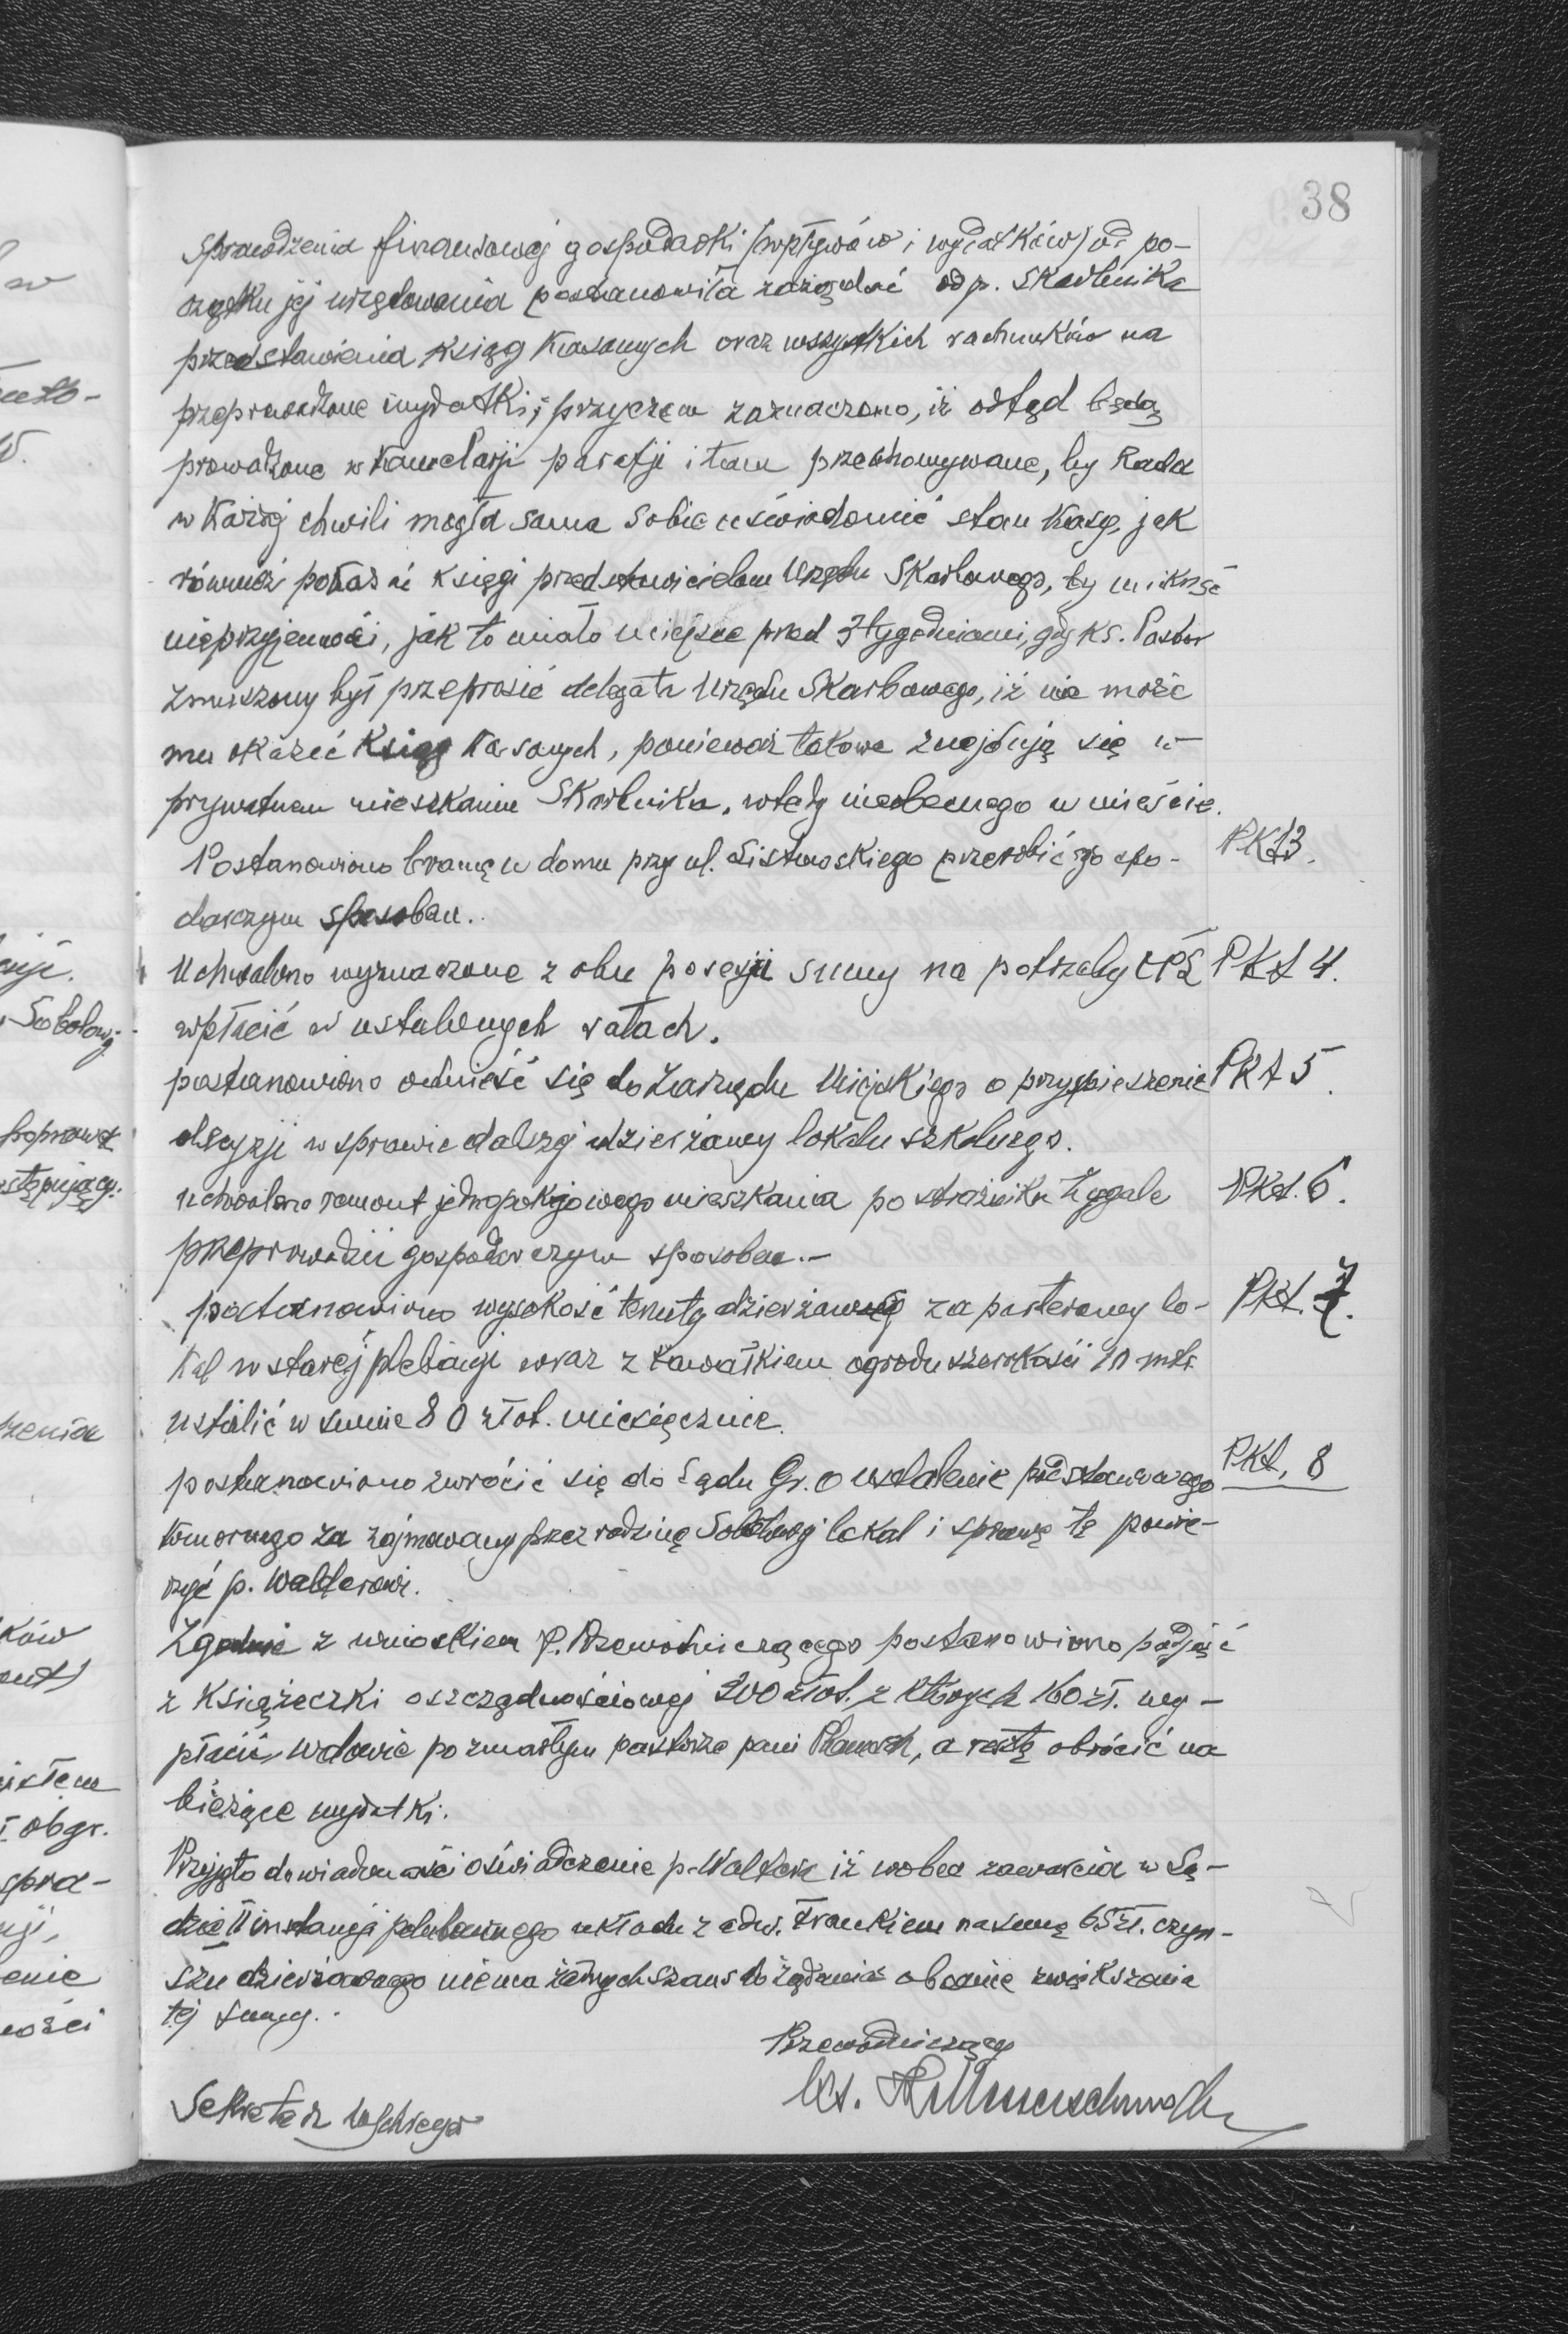 38
sprawdzenia finansowej gospodarki (wpływów i wydatków) od po-
czątku jej urzędowania postanowiła zażądać od p. Skarbnika
przedstawienia ksiąg kasowych oraz wszystkich rachunków na
przeprowadzone wydatki; przyczem zaznaczono, iż odtąd będą
prowadzone w kancelarji parafji i tam przechowywane, by Rada
w każdej chwili mogła sama sobie uświadomić stan kasy, jak
również pokazać księgi przedstawicielom Urzędu Skarbowego, by uniknąć
nieprzyjemności, jak to miało miejsce przed 3 tygodniami, gdy ks. Pastor
zmuszony był przeprosić delegata Urzędu Skarbowego, iż nie może
mu okazać Ksiąg kasowych, ponieważ takowe znajdują się w
prywatnem mieszkaniu Skarbnika, wtedy nieobecnego w mieście.
Postanowiono bramę w domu przy ul. przerobić gospo- PKt3.
darczym sposobem.
Uchwalono wyznaczone z obu posesji sumy na potrzeby PKt 4.
wpłacić w ustalonych ratach.
postanowiono odnieść się do Zarządu Miejskiego o przyspieszenie PKt 5.
decyzji w sprawie dalszej dzierżawy lokalu szkolnego.
Uchwalono remont jednopokojowego mieszkania po strażniku Zygale PKt. 6.
przeprowadzić gospodarczym sposobem.-
postanowiono wysokość tenuty dzierżawnej za parterowy lo- PKt. 7.
kal w starej plebanji wraz z kawałkiem ogrodu szerokości 10 mtr.
ustalić w sumie 80 złot. miesięcznie.
postanowiono zwrócić się do Sądu Gr. o ustalenie podstawowego PKt, 8
komornego za zajmowany przez rodzinę Sobotowej lokal i sprawę tę powie-
rzyć p. Walterowi.
Zgodnie z wnioskiem P. Przewodniczącego postanowiono podjąć
z książeczki oszczędnościowej 200 złot. z których 160 zł. wy-
płacić wdowie po zmarłym pastorze pani, a resztę obrócić na
bieżące wydatki.
Przyjęto do wiadomości oświadczenie p. Waltera iż wobec zawarcia w Są-
dzie II instancji polubownego układu z adw. Frankiem na sumę 65 zł. czyn-
szu dzierżawnego niema żadnych szans do żądania obecnie zwiększenia
tej sumy.
Przewodniczący
Ks.
Sekretarz